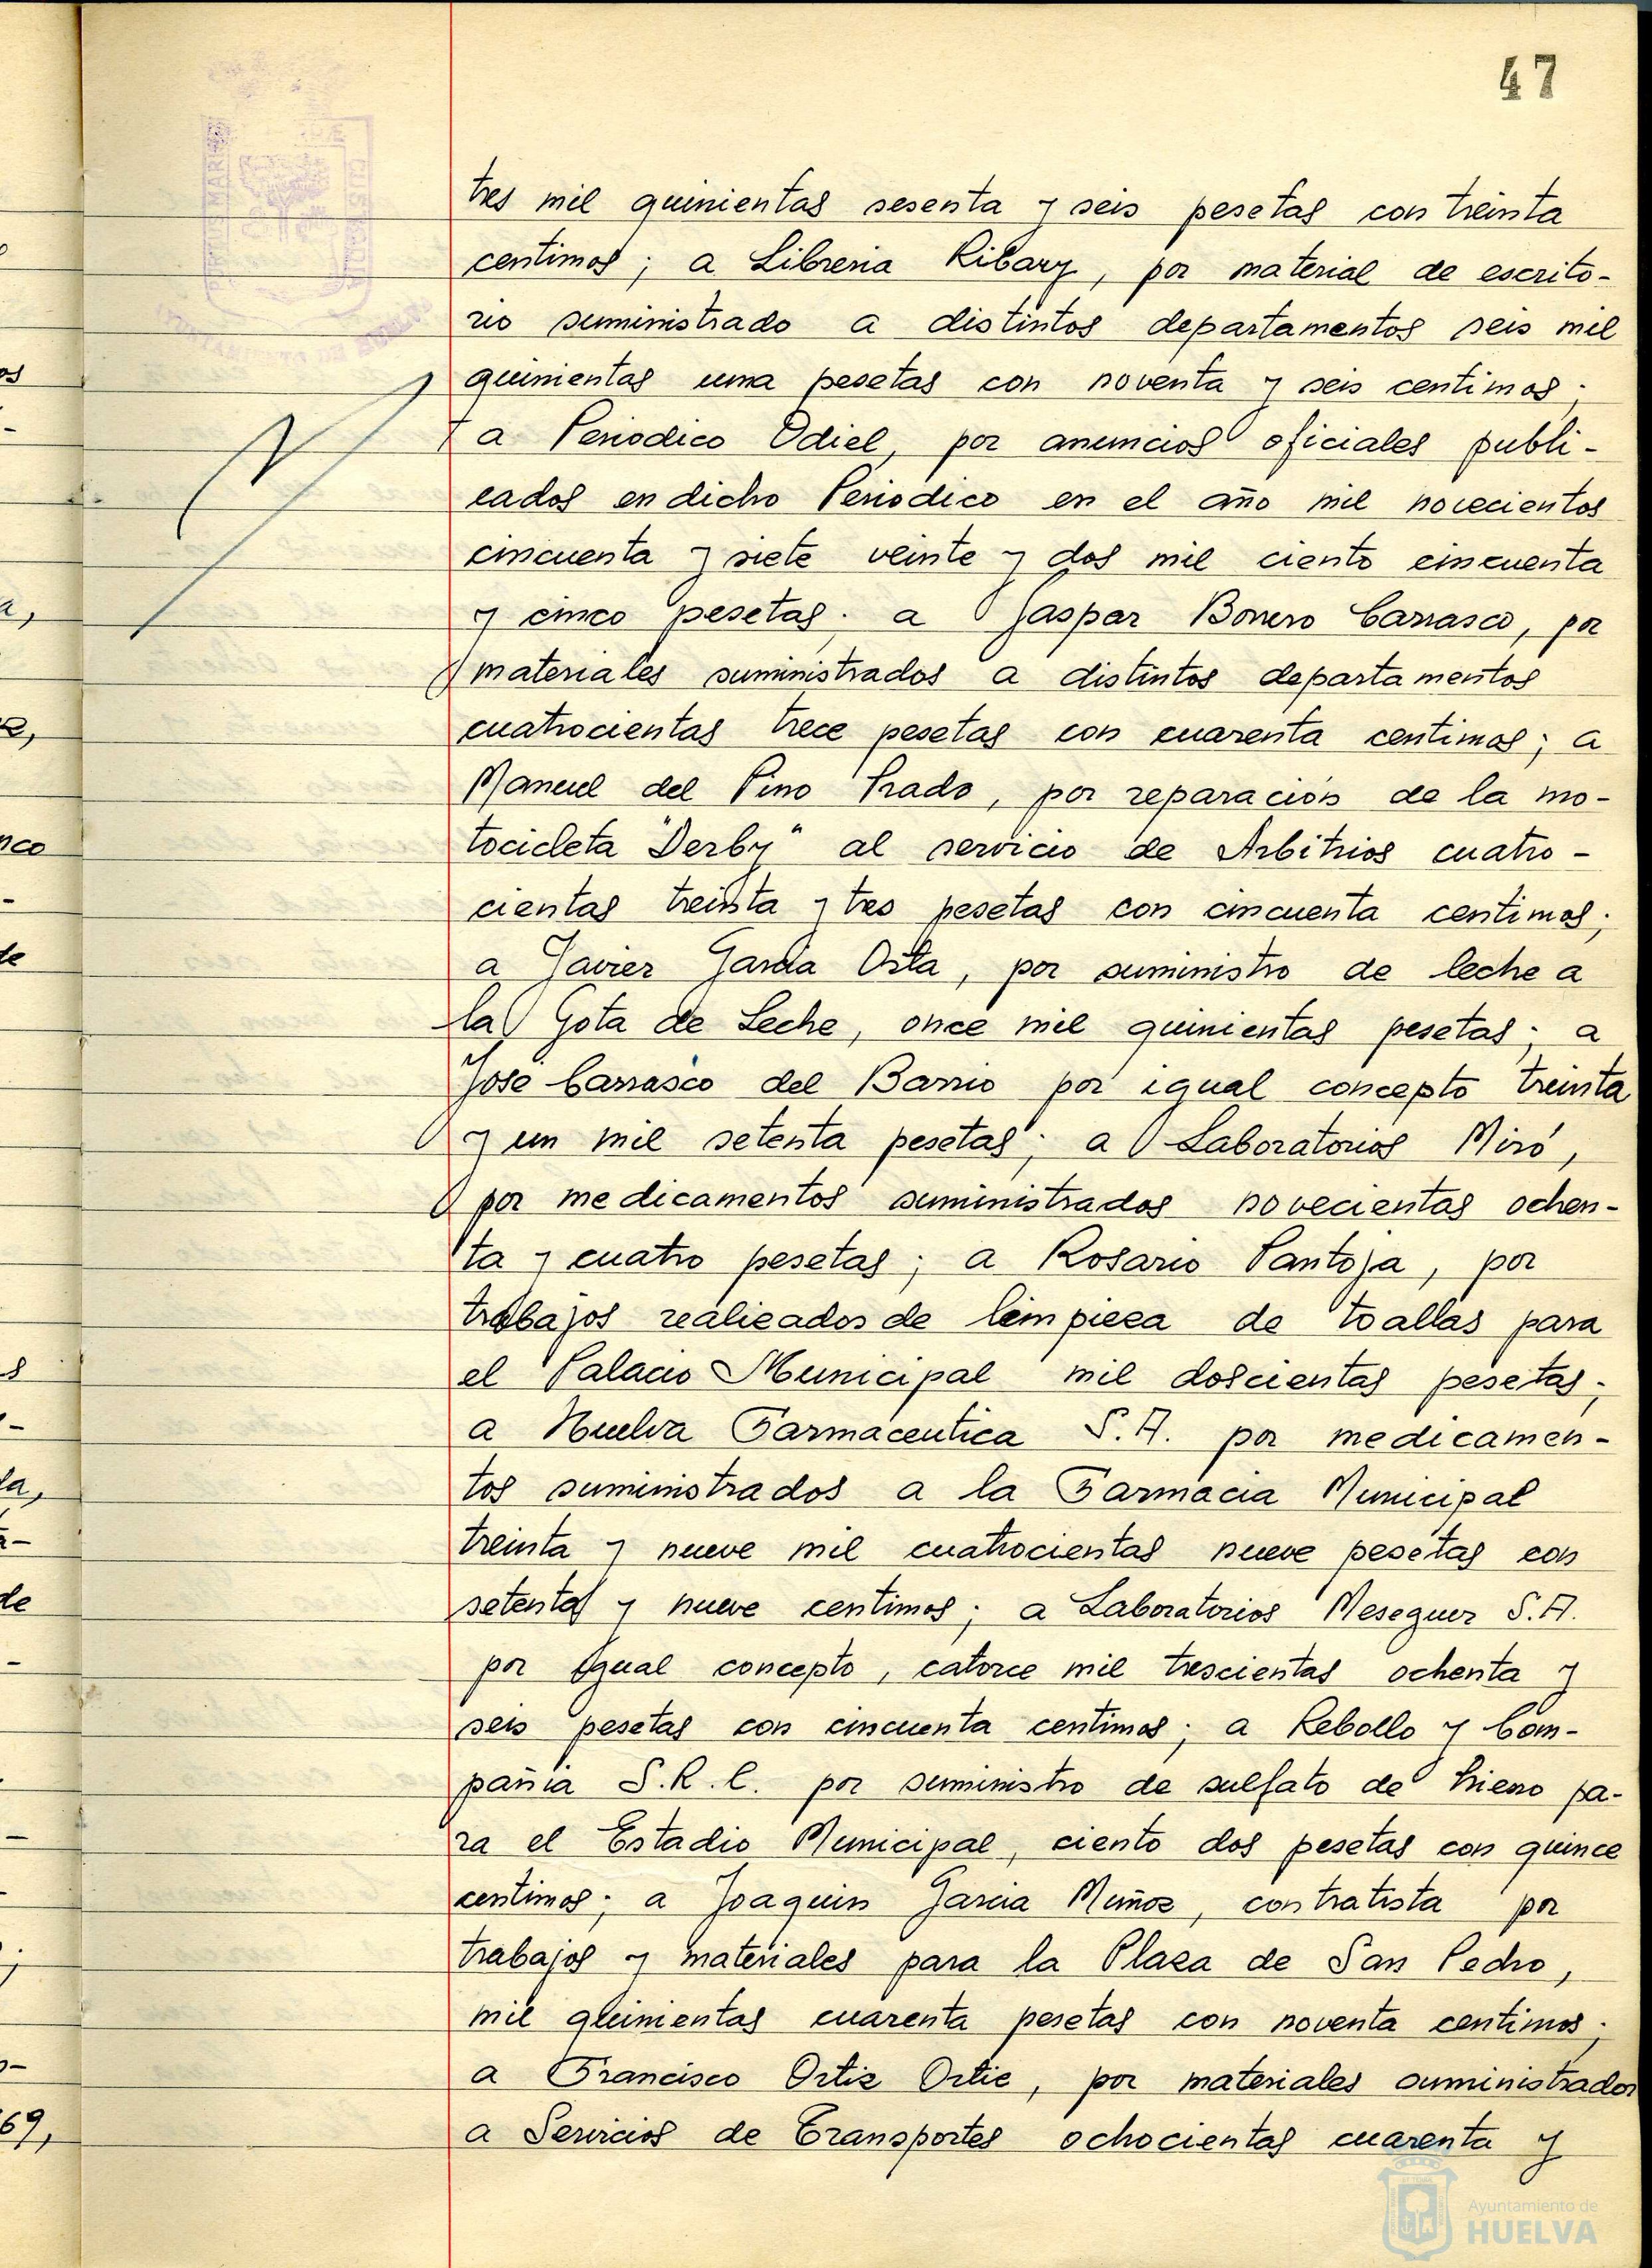 47
tres mil quinientas sesenta y seis pesetas con treinta
centimos; a Libreria Ribary, por material de escrito-
rio suministrado a distintos departamentos seis mil
quinientas una pesetas con noventa y seis centimos;
a Periodico Odiel, por anuncios oficiales publi-
cados en dicho Periodico en el año mil novecientos
cincuenta y siete veinte y dos mil ciento cincuenta
y cinco pesetas; a Gaspar Bonero Carrasco, por
materiales suministrados a distintos departamentos
cuatrocientas trece pesetas con cuarenta centimos; a
Manuel del Pino Prado, por reparación de la mo-
tocicleta "Derby" al servicio de Arbitrios cuatro-
cientas treinta y tres pesetas con cincuenta centimos;
a Javier Garcia Orta, por suministro de leche a
la Gota de Leche, once mil quinientas pesetas; a
José Carrasco del Barrio por igual concepto treinta
y un mil setenta pesetas; a Laboratorios Miró,
por medicamentos suministrados novecientas ochen-
ta y cuatro pesetas; a Rosario Pantoja, por
trabajos realizados de limpieza de toallas para
el Palacio Municipal mil doscientas pesetas;
a Huelva Farmaceutica S.A. por medicamen-
tos suministrados a la Farmacia Municipal
treinta y nueve mil cuatrocientas nueve pesetas con
setenta y nueve centimos; a Laboratorios Meseguer S.A.
por igual concepto, catorce mil trescientas ochenta y
seis pesetas con cincuenta centimos; a Rebollo y Com-
pañia S.R.C. por suministro de sulfato de hierro pa-
ra el Estadio Municipal, ciento dos pesetas con quince
centimos; a Joaquin Garcia Muñoz, contratista por
trabajos y materiales para la Plaza de San Pedro,
mil quinientas cuarenta pesetas con noventa centimos;
a Francisco Ortiz Ortiz, por materiales suministrados
a Servicios de Transportes ochocientas cuarenta y
Ayuntamiento de
HUELVA